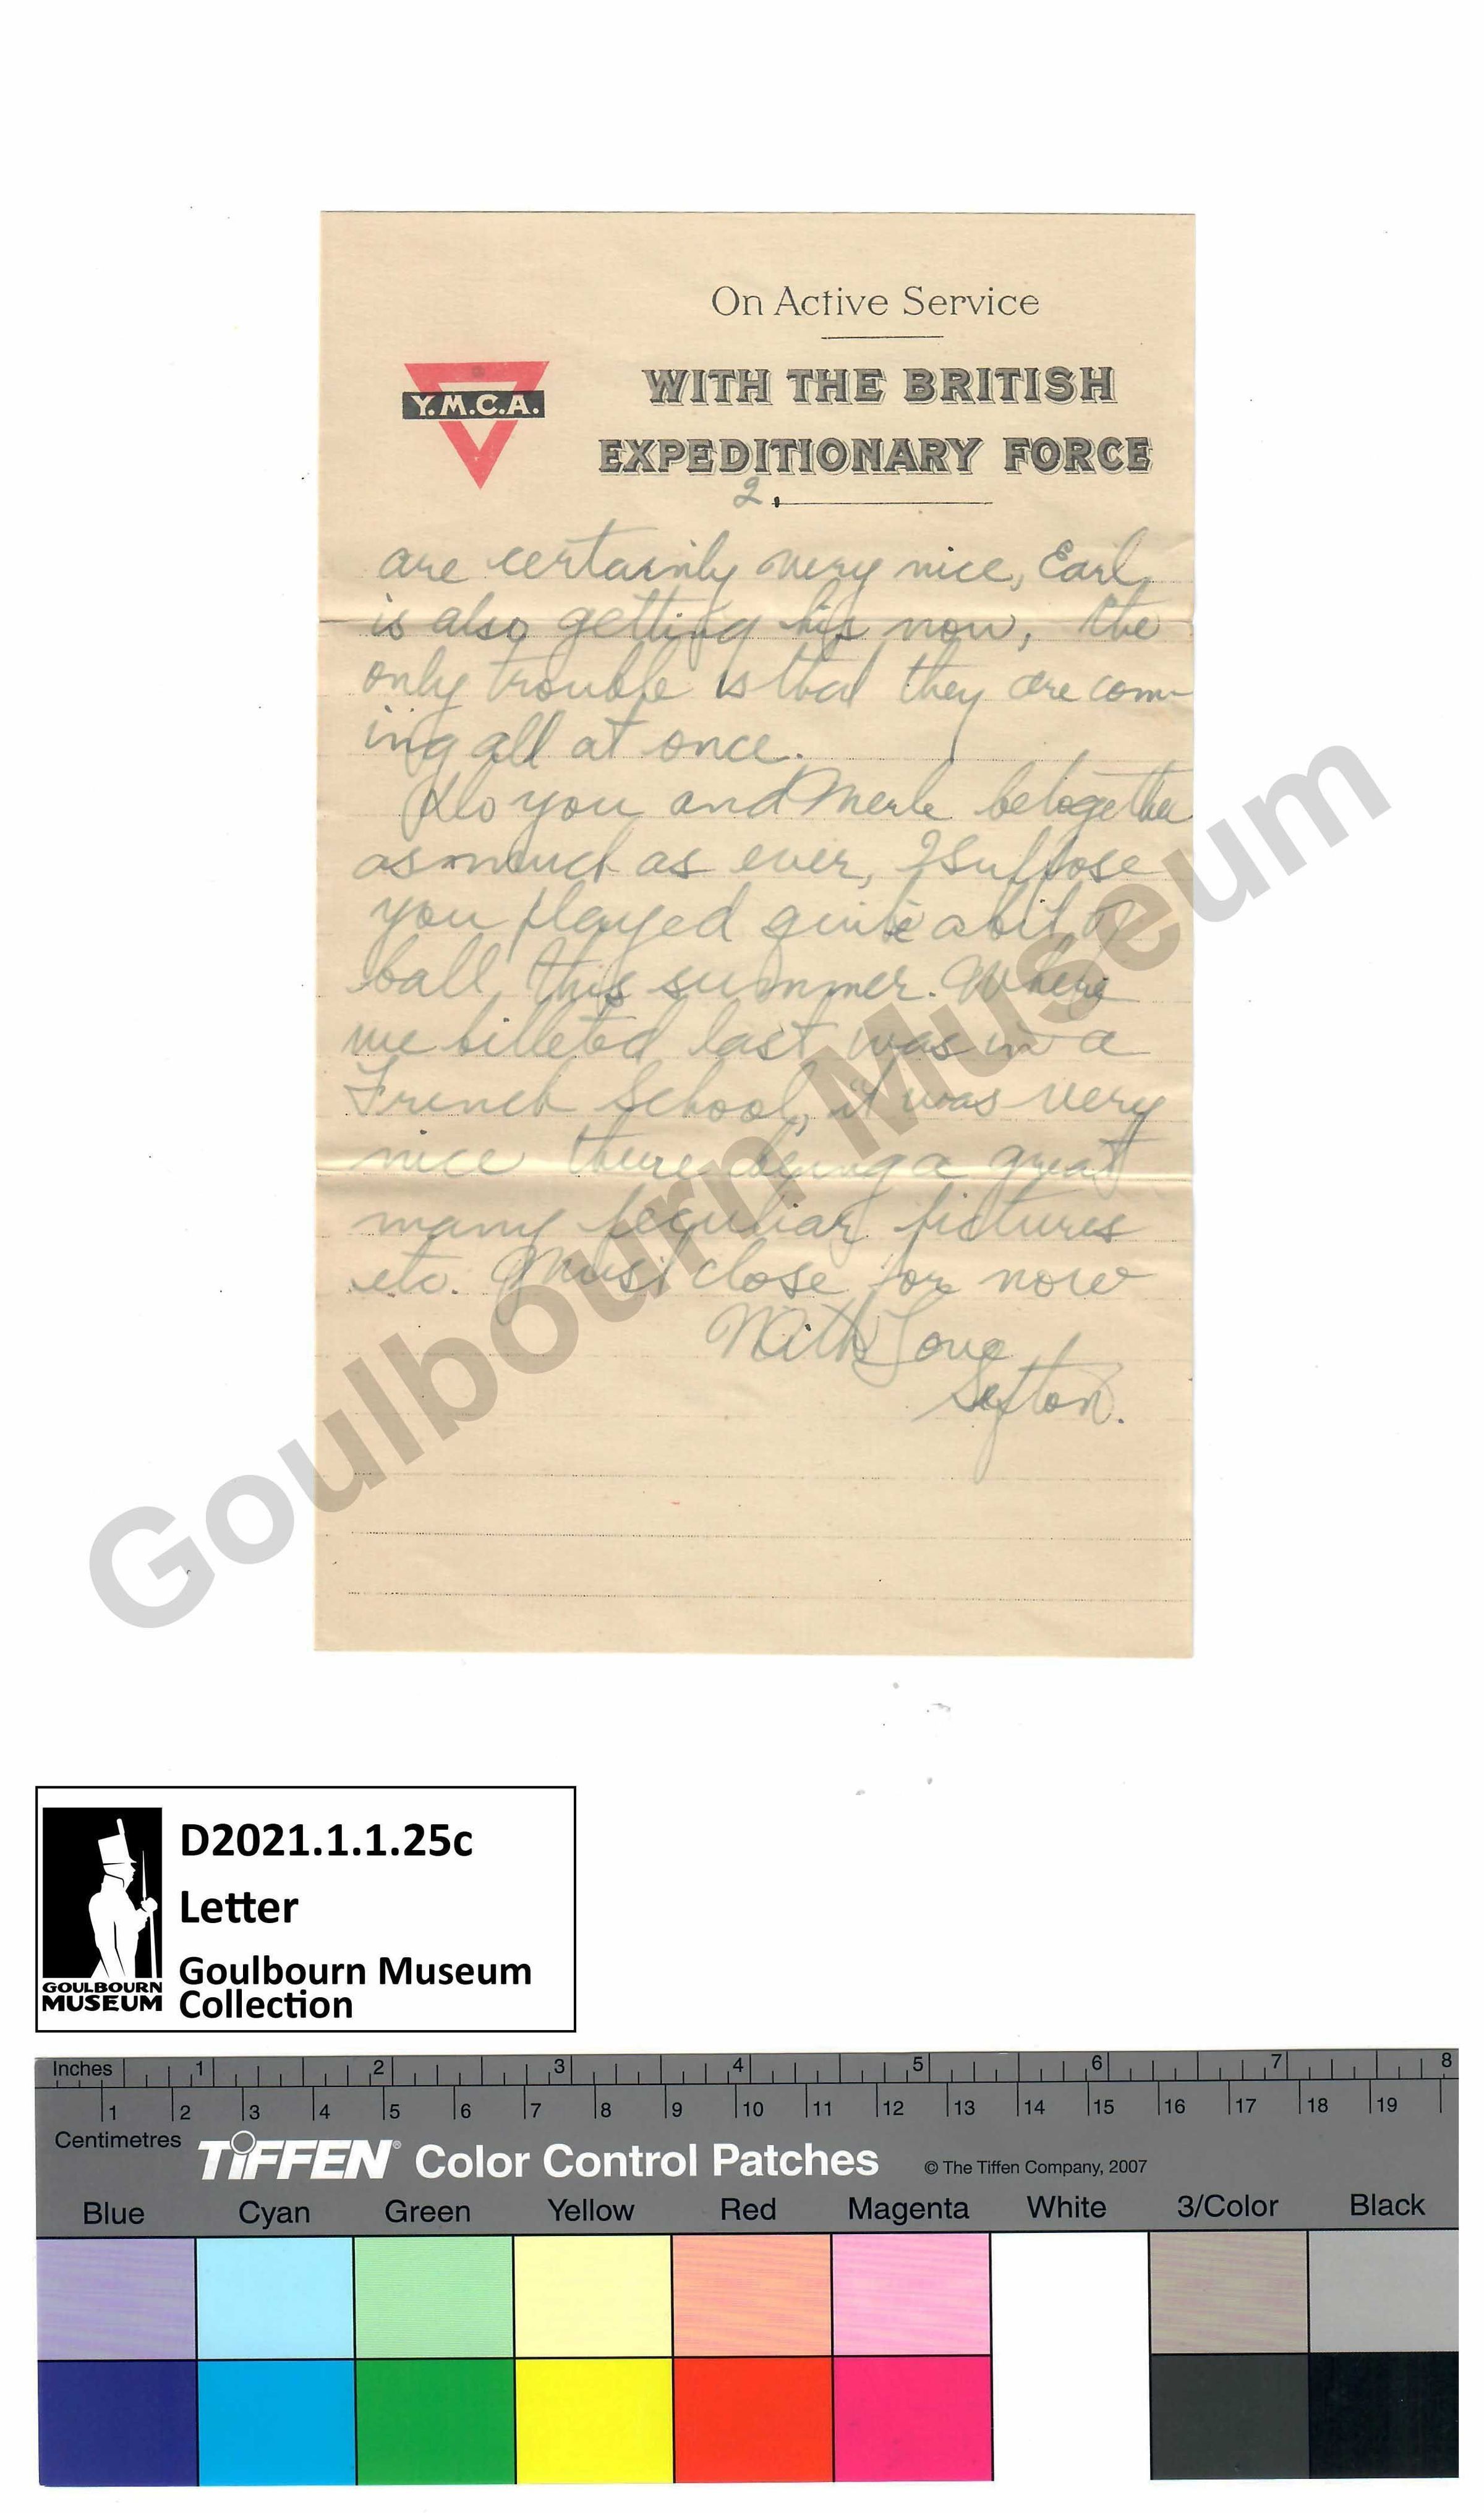 On Active Service
Y.M.C.A.
WITH THE BRITISH
EXPEDITIONARY FORCE
2.
are certainly very nice, Earl
is also getting his now, the
only trouble is that they are com-
ing all at once.
Do you and Merle be together
as much as ever, I suppose
you played quite a bit of
ball this summer. Where
we billeted last was in a
French School, it was very
nice there being a great
many peculiar pictures
etc. Must close for now
With Love
Sefton.
Goulbourn Museum
D2021.1.1.25c
Letter
Goulbourn Museum
Collection
GOULBOURN
MUSEUM
Inches 1 2 3 4 5 6 7 8
1 2 3 4 5 6 7 8 9 10 11 12 13 14 15 16 17 18 19
Centimetres
TIFFEN® Color Control Patches © The Tiffen Company, 2007
Blue Cyan Green Yellow Red Magenta White 3/Color Black